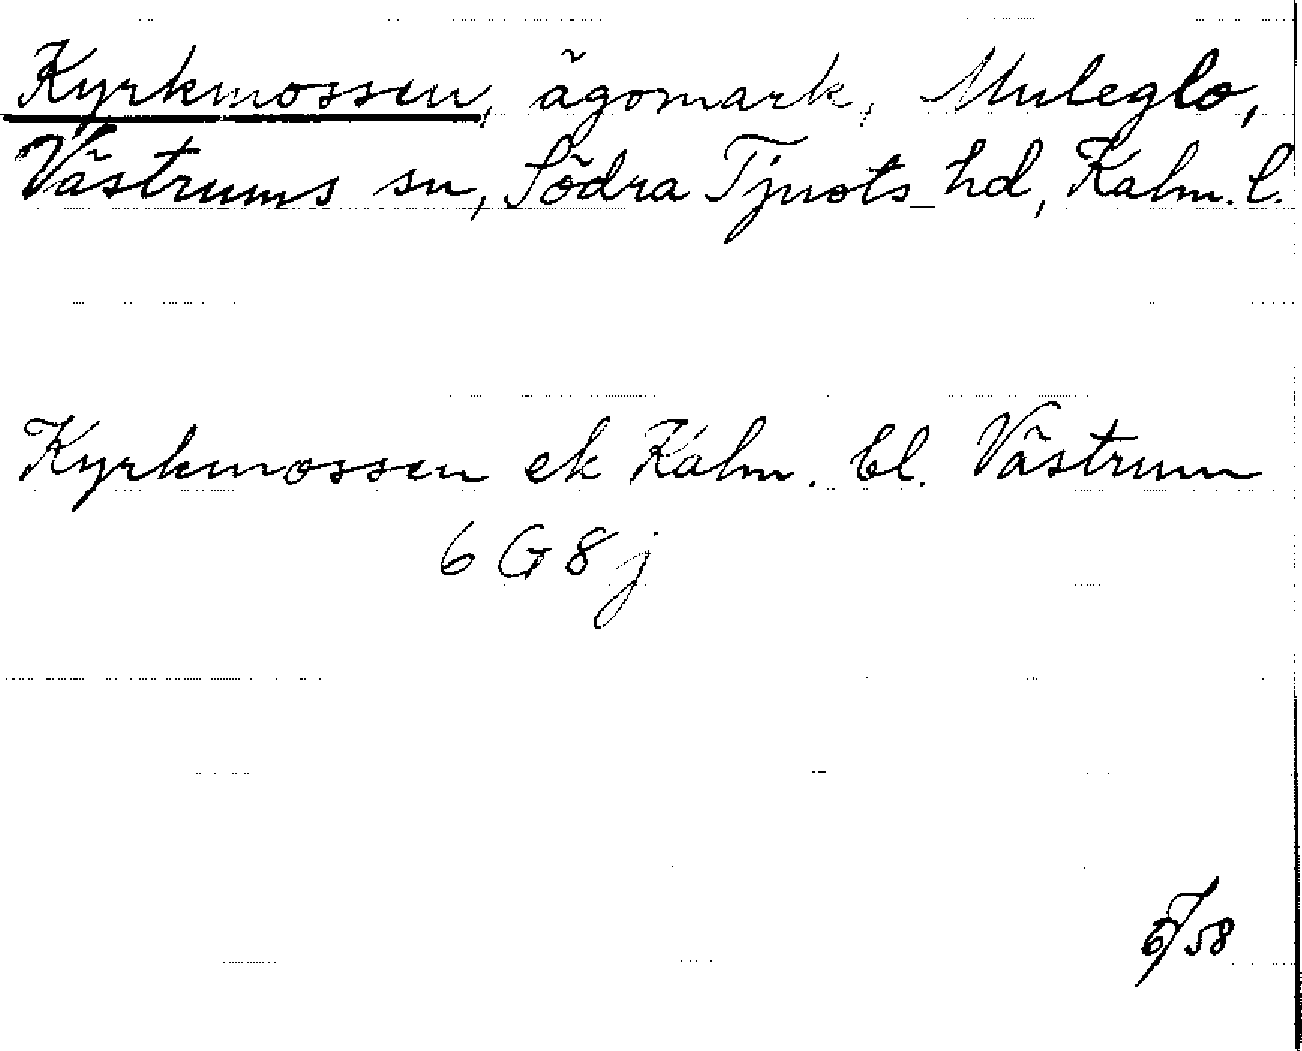 Kyrkmossen, ägomark, Muleglo,
Västrums sn, Södra Tjusts hd, Kalm. l.
Kyrkmossen ek Kalm. bl. Västrum
6 G 8 j